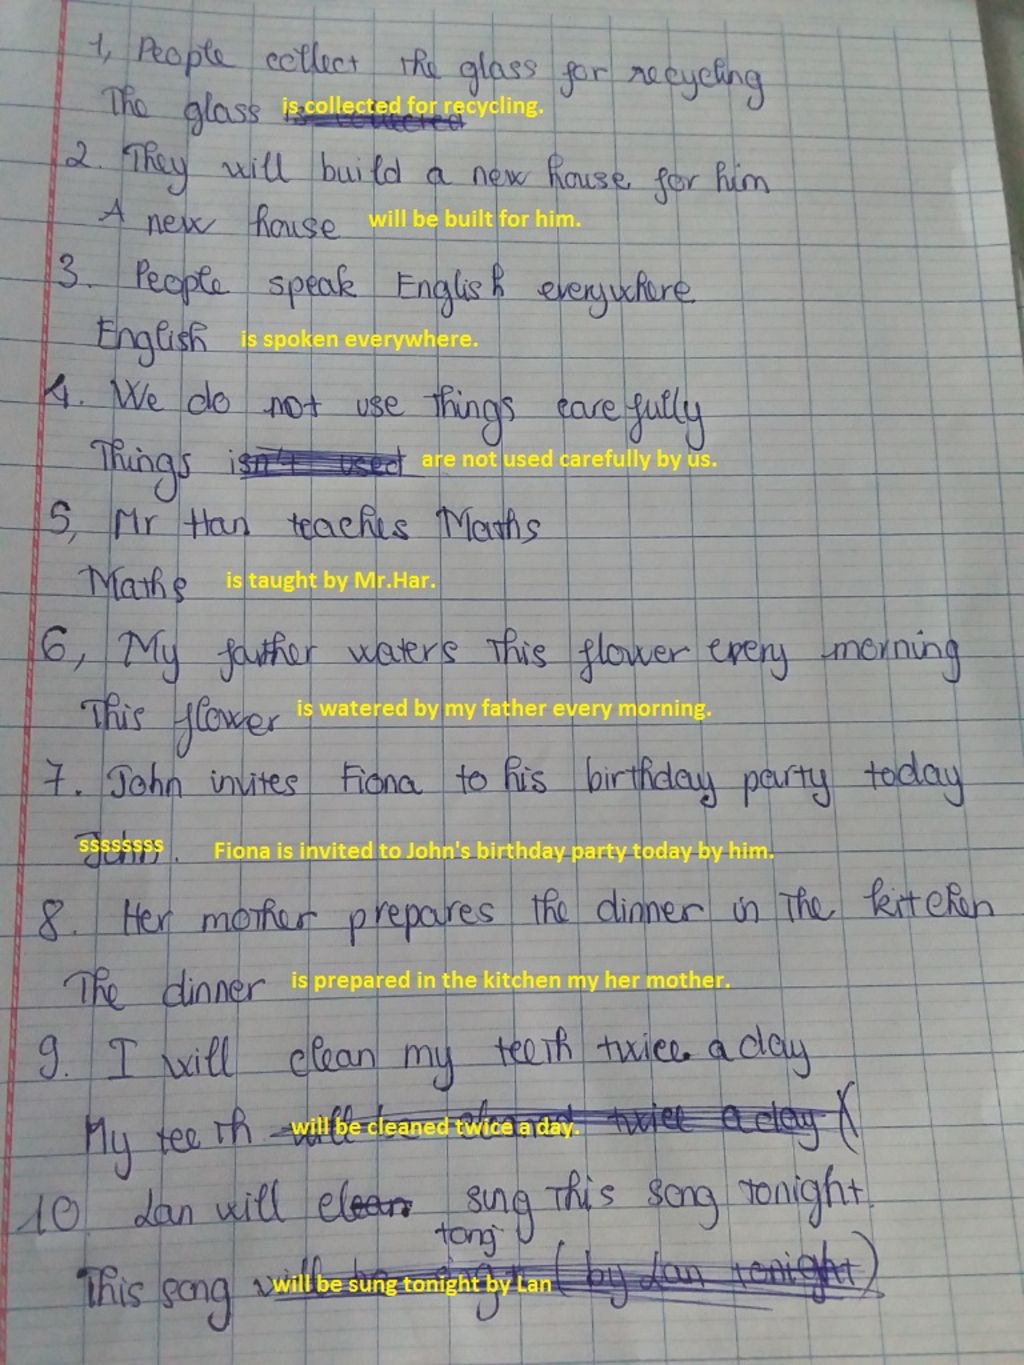 1, People collect the glass for recycling
The glass is collected for recycling.
2. They will build a new house for him
A new house will be built for him.
3. People speak English everywhere
English is spoken everywhere.
4. We do not use things carefully
Things isn't used are not used carefully by us.
5, Mr Han teaches Maths
Maths is taught by Mr.Har.
6, My father waters this flower every morning
This flower is watered by my father every morning.
7. John invites Fiona to his birthday party today
John. ssssssss Fiona is invited to John's birthday party today by him.
8. Her mother prepares the dinner in the kitchen
The dinner is prepared in the kitchen my her mother.
9. I will clean my teeth twice a day
My teeth will be cleaned twice a day.
10 Lan will clean sing this song tonight
tong
This song will be sung tonight by Lan (by Lan tonight)